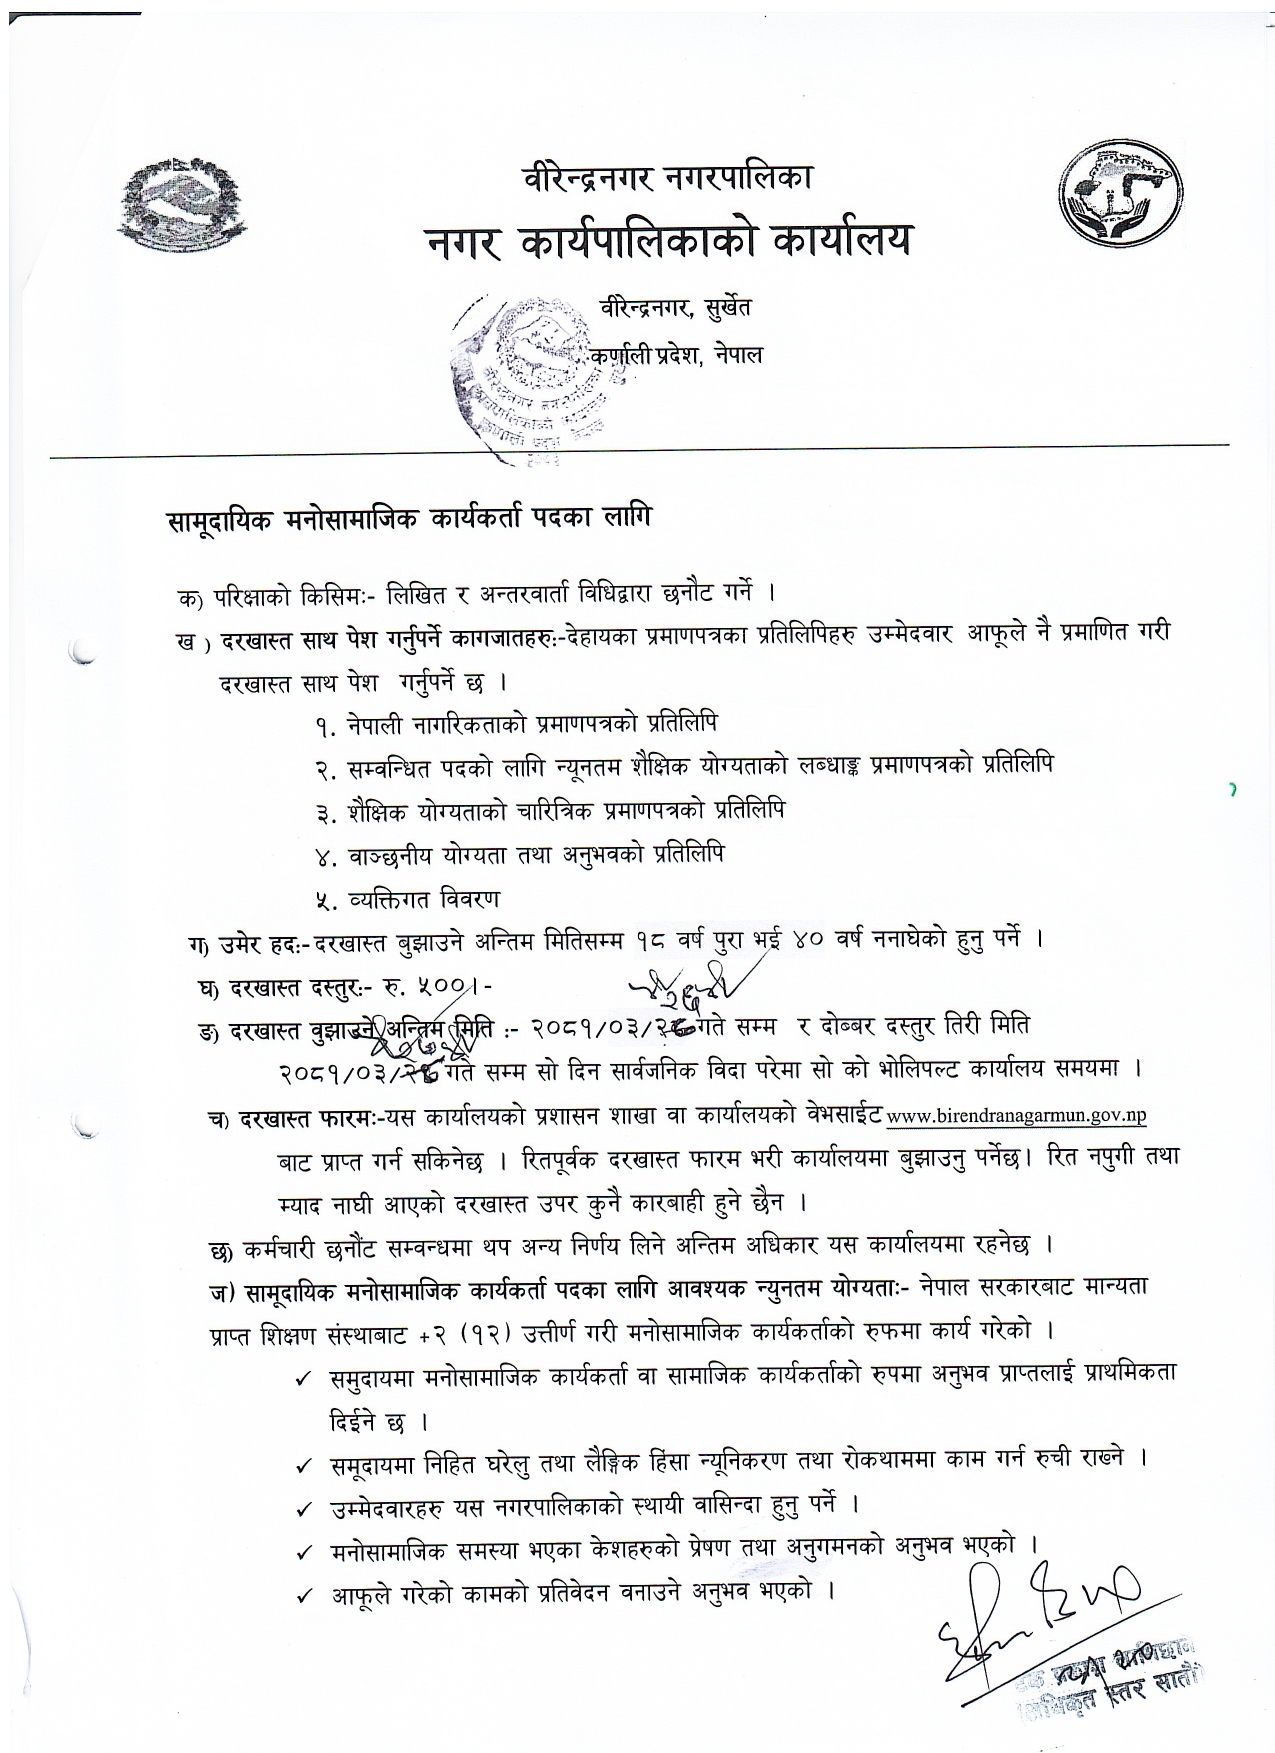 वीरेन्द्रनगर नगरपालिका
नगर कार्यपालिकाको कार्यालय
वीरेन्द्रनगर, सुर्खेत
कर्णाली प्रदेश, नेपाल
सामूदायिक मनोसामाजिक कार्यकर्ता पदका लागि
क) परिक्षाको किसिमः- लिखित र अन्तरवार्ता विधिद्वारा छनौट गर्ने ।
ख ) दरखास्त साथ पेश गर्नुपर्ने कागजातहरुः-देहायका प्रमाणपत्रका प्रतिलिपिहरु उम्मेदवार आफूले नै प्रमाणित गरी
दरखास्त साथ पेश गर्नुपर्ने छ ।
१. नेपाली नागरिकताको प्रमाणपत्रको प्रतिलिपि
२. सम्वन्धित पदको लागि न्यूनतम शैक्षिक योग्यताको लब्धाङ्क प्रमाणपत्रको प्रतिलिपि
३. शैक्षिक योग्यताको चारित्रिक प्रमाणपत्रको प्रतिलिपि
४. वाञ्छनीय योग्यता तथा अनुभवको प्रतिलिपि
५. व्यक्तिगत विवरण
ग) उमेर हदः- दरखास्त बुझाउने अन्तिम मितिसम्म १८ वर्ष पुरा भई ४० वर्ष ननाघेको हुनु पर्ने ।
घ) दरखास्त दस्तुरः- रु. ५००।-
ङ) दरखास्त वुझाउने अन्तिम मिति :- २०८१/०३/ गते सम्म र दोब्बर दस्तुर तिरी मिति
२०८१/०३/ गते सम्म सो दिन सार्वजनिक विदा परेमा सो को भोलिपल्ट कार्यालय समयमा ।
च) दरखास्त फारमः-यस कार्यालयको प्रशासन शाखा वा कार्यालयको वेभसाईट www.birendranagarmun.gov.np
बाट प्राप्त गर्न सकिनेछ । रितपूर्वक दरखास्त फारम भरी कार्यालयमा बुझाउनु पर्नेछ। रित नपुगी तथा
म्याद नाघी आएको दरखास्त उपर कुनै कारबाही हुने छैन ।
छ) कर्मचारी छनौंट सम्वन्धमा थप अन्य निर्णय लिने अन्तिम अधिकार यस कार्यालयमा रहनेछ ।
ज) सामूदायिक मनोसामाजिक कार्यकर्ता पदका लागि आवश्यक न्युनतम योग्यताः- नेपाल सरकारबाट मान्यता
प्राप्त शिक्षण संस्थाबाट +२ (१२) उत्तीर्ण गरी मनोसामाजिक कार्यकर्ताको रुफमा कार्य गरेको ।
✓ समुदायमा मनोसामाजिक कार्यकर्ता वा सामाजिक कार्यकर्ताको रुपमा अनुभव प्राप्तलाई प्राथमिकता
दिईने छ ।
✓ समूदायमा निहित घरेलु तथा लैङ्गिक हिंसा न्यूनिकरण तथा रोकथाममा काम गर्न रुची राख्ने ।
✓ उम्मेदवारहरु यस नगरपालिकाको स्थायी वासिन्दा हुनु पर्ने ।
✓ मनोसामाजिक समस्या भएका केशहरुको प्रेषण तथा अनुगमनको अनुभव भएको ।
✓ आफूले गरेको कामको प्रतिवेदन वनाउने अनुभव भएको ।
अधिकृत स्तर सातौं